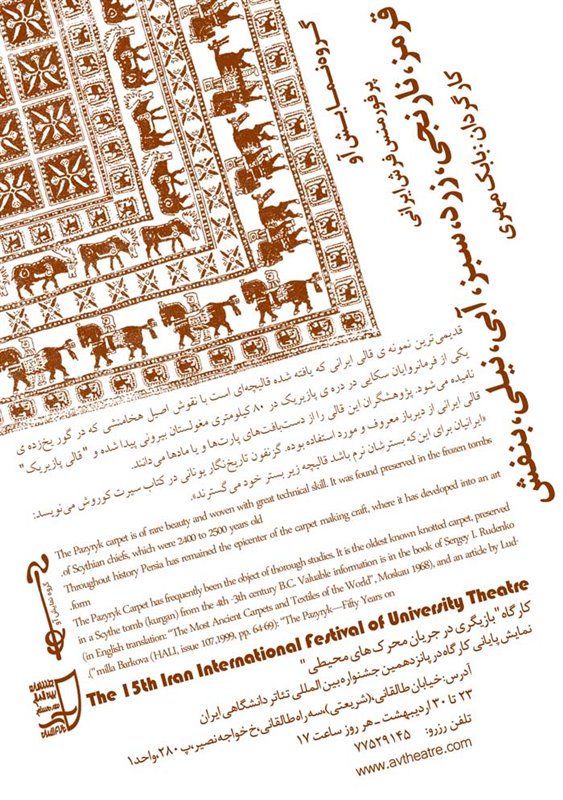 گروه نمایش آو
پرفورمنس فرش ایرانی
قرمز، نارنجی، زرد، سبز، آبی، نیلی، بنفش
کارگردان: بابک مهری
قدیمی‌ترین نمونه‌ی قالی ایرانی که یافته شده قالیچه‌ای است با نقوش اصیل هخامنشی که در گور یخ‌زده‌ی
یکی از فرمانروایان سکایی در دره‌ی پازیریک در ۸۰ کیلومتری مغولستان بیرونی پیدا شده و "قالی پازیریک"
نامیده می‌شود. پژوهشگران این قالی را از دست‌بافت‌های پارت‌ها و یا مادها می‌دانند.
قالی ایرانی از دیرباز معروف و مورد استفاده بوده. گزنفون تاریخ‌نگار یونانی در کتاب سیرت کوروش می‌نویسد:
«ایرانیان برای این که بسترشان نرم باشد قالیچه زیر بستر خود می‌گسترند».
The Pazyryk carpet is of rare beauty and woven with great technical skill. It was found preserved in the frozen tombs
.of Scythian chiefs, which were 2400 to 2500 years old
Throughout history Persia has remained the epicenter of the carpet making craft, where it has developed into an art
.form
The Pazyryk Carpet has frequently been the object of thorough studies. It is the oldest known knotted carpet, preserved
in a Scythe tomb (kurgan) from the 4th -3th century B.C. Valuable information is in the book of Sergey I. Rudenko
(in English translation: "The Most Ancient Carpets and Textiles of the World", Moskau 1968), and an article by Lud-
.("milla Barkova (HALI, issue 107,1999, pp. 64-69): "The Pazyryk—Fifty Years on
گروه نمایش آو
The 15th Iran International Festival of University Theatre
کارگاه "بازیگری در جریان محرک‌های محیطی"
نمایش پایانی کارگاه در پانزدهمین جشنواره بین المللی تئاتر دانشگاهی ایران
آدرس: خیابان طالقانی، (شریعتی)، سه راه طالقانی، خ خواجه نصیر، پ ۲۸۰، واحد۱
۲۳ تا ۳۰ اردیبهشت - هر روز ساعت ۱۷
تلفن رزرو: ۷۷۵۲۹۱۴۵
www.avtheatre.com